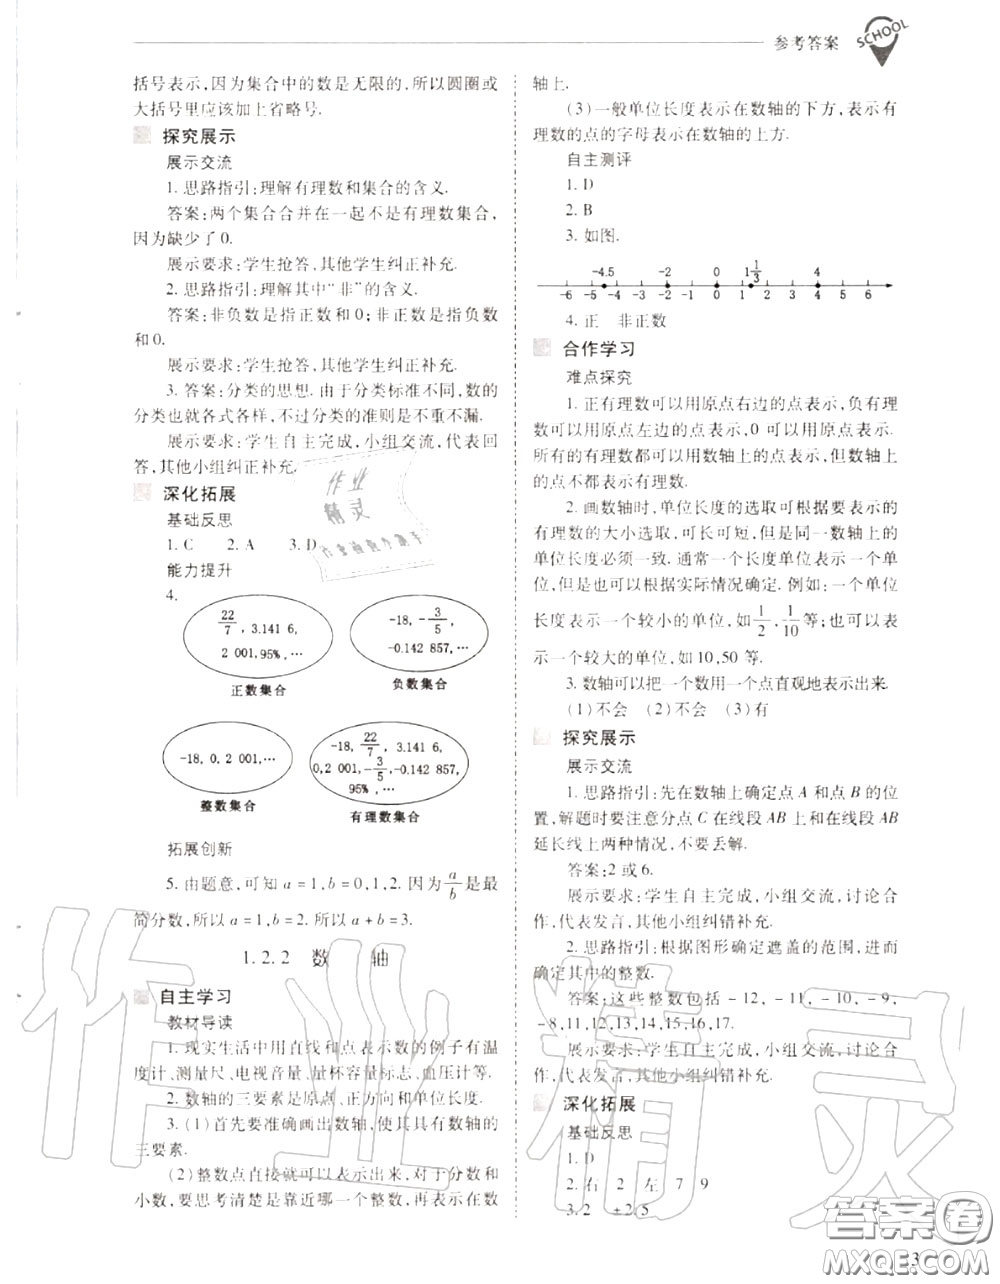 参考答案
SCHOOL
括号表示,因为集合中的数是无限的,所以圆圈或
大括号里应该加上省略号.
探究展示
展示交流
1. 思路指引:理解有理数和集合的含义.
答案:两个集合合并在一起不是有理数集合,
因为缺少了0.
展示要求:学生抢答,其他学生纠正补充.
2. 思路指引:理解其中“非”的含义.
答案:非负数是指正数和0;非正数是指负数
和0.
展示要求:学生抢答,其他学生纠正补充.
3. 答案:分类的思想. 由于分类标准不同,数的
分类也就各式各样,不过分类的准则是不重不漏.
展示要求:学生自主完成,小组交流,代表回
答,其他小组纠正补充.
深化拓展
基础反思
1. C 2. A 3. D
能力提升
4.
22/7, 3.141 6,
2 001,95%,…
正数集合
-18, -3/5,
-0.142 857,…
负数集合
-18, 0, 2 001,…
整数集合
-18, 22/7, 3.141 6,
0,2 001,-3/5,-0.142 857,
95%,…
有理数集合
拓展创新
5. 由题意,可知 a=1,b=0,1,2. 因为a/b是最
简分数,所以 a=1,b=2. 所以 a+b=3.
1.2.2 数 轴
自主学习
教材导读
1. 现实生活中用直线和点表示数的例子有温
度计、测量尺、电视音量、量杯容量标志、血压计等.
2. 数轴的三要素是原点、正方向和单位长度.
3. (1)首先要准确画出数轴,使其具有数轴的
三要素.
(2)整数点直接就可以表示出来,对于分数和
小数,要思考清楚是靠近哪一个整数,再表示在数
轴上.
(3)一般单位长度表示在数轴的下方,表示有
理数的点的字母表示在数轴的上方.
自主测评
1. D
2. B
3. 如图.
-4.5 -2 0 1 1/3 4
-6 -5 -4 -3 -2 -1 0 1 2 3 4 5 6
4. 正 非正数
合作学习
难点探究
1. 正有理数可以用原点右边的点表示,负有理
数可以用原点左边的点表示,0 可以用原点表示.
所有的有理数都可以用数轴上的点表示,但数轴上
的点不都表示有理数.
2. 画数轴时,单位长度的选取可根据要表示的
有理数的大小选取,可长可短,但是同一数轴上的
单位长度必须一致. 通常一个长度单位表示一个单
位,但是也可以根据实际情况确定. 例如:一个单位
长度表示一个较小的单位,如1/2,1/10等;也可以表
示一个较大的单位,如 10,50 等.
3. 数轴可以把一个数用一个点直观地表示出来.
(1)不会 (2)不会 (3)有
探究展示
展示交流
1. 思路指引:先在数轴上确定点 A 和点 B 的位
置,解题时要注意分点 C 在线段 AB 上和在线段 AB
延长线上两种情况,不要丢解.
答案:2 或 6.
展示要求:学生自主完成,小组交流,讨论合
作,代表发言,其他小组纠错补充.
2. 思路指引:根据图形确定遮盖的范围,进而
确定其中的整数.
答案:这些整数包括 -12, -11, -10, -9,
-8,11,12,13,14,15,16,17.
展示要求:学生自主完成,小组交流,讨论合
作,代表发言,其他小组纠错补充.
深化拓展
基础反思
1. D
2. 右 2 左 7 9
3. 2 ±2.5
3
作业
精灵
作业精灵
答案圈
MXQE.COM